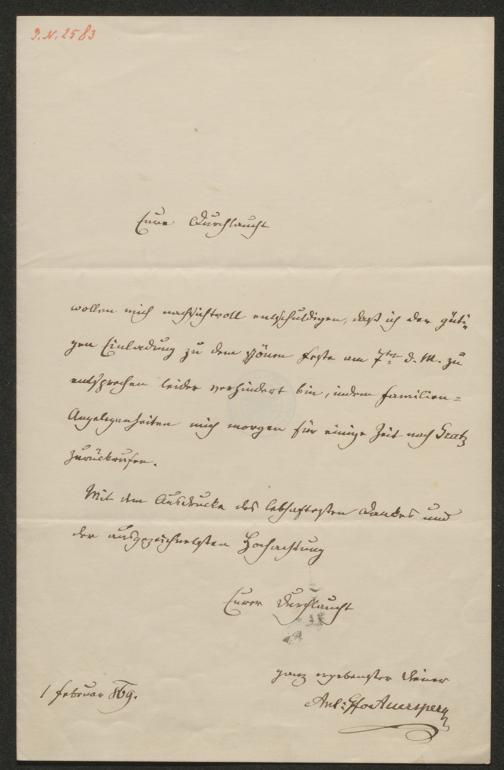 J.N. 2583
Eure Durchlaucht
wollen mich nachsichtvoll entschuldigen, daß ich der güti-
gen Einladung zu dem schönen Feste am 7ten d. M. zu
entsprechen leider verhindert bin, indem Familien-
Angelegenheiten mich morgen für einige Zeit nach Gratz
zurückrufen.
Mit dem Ausdrucke des lebhaftesten Dankes und
der ausgezeichnetsten Hochachtung
Eurer Durchlaucht
ganz ergebenster Diener
Ant: Auersperg
1 Februar 869.